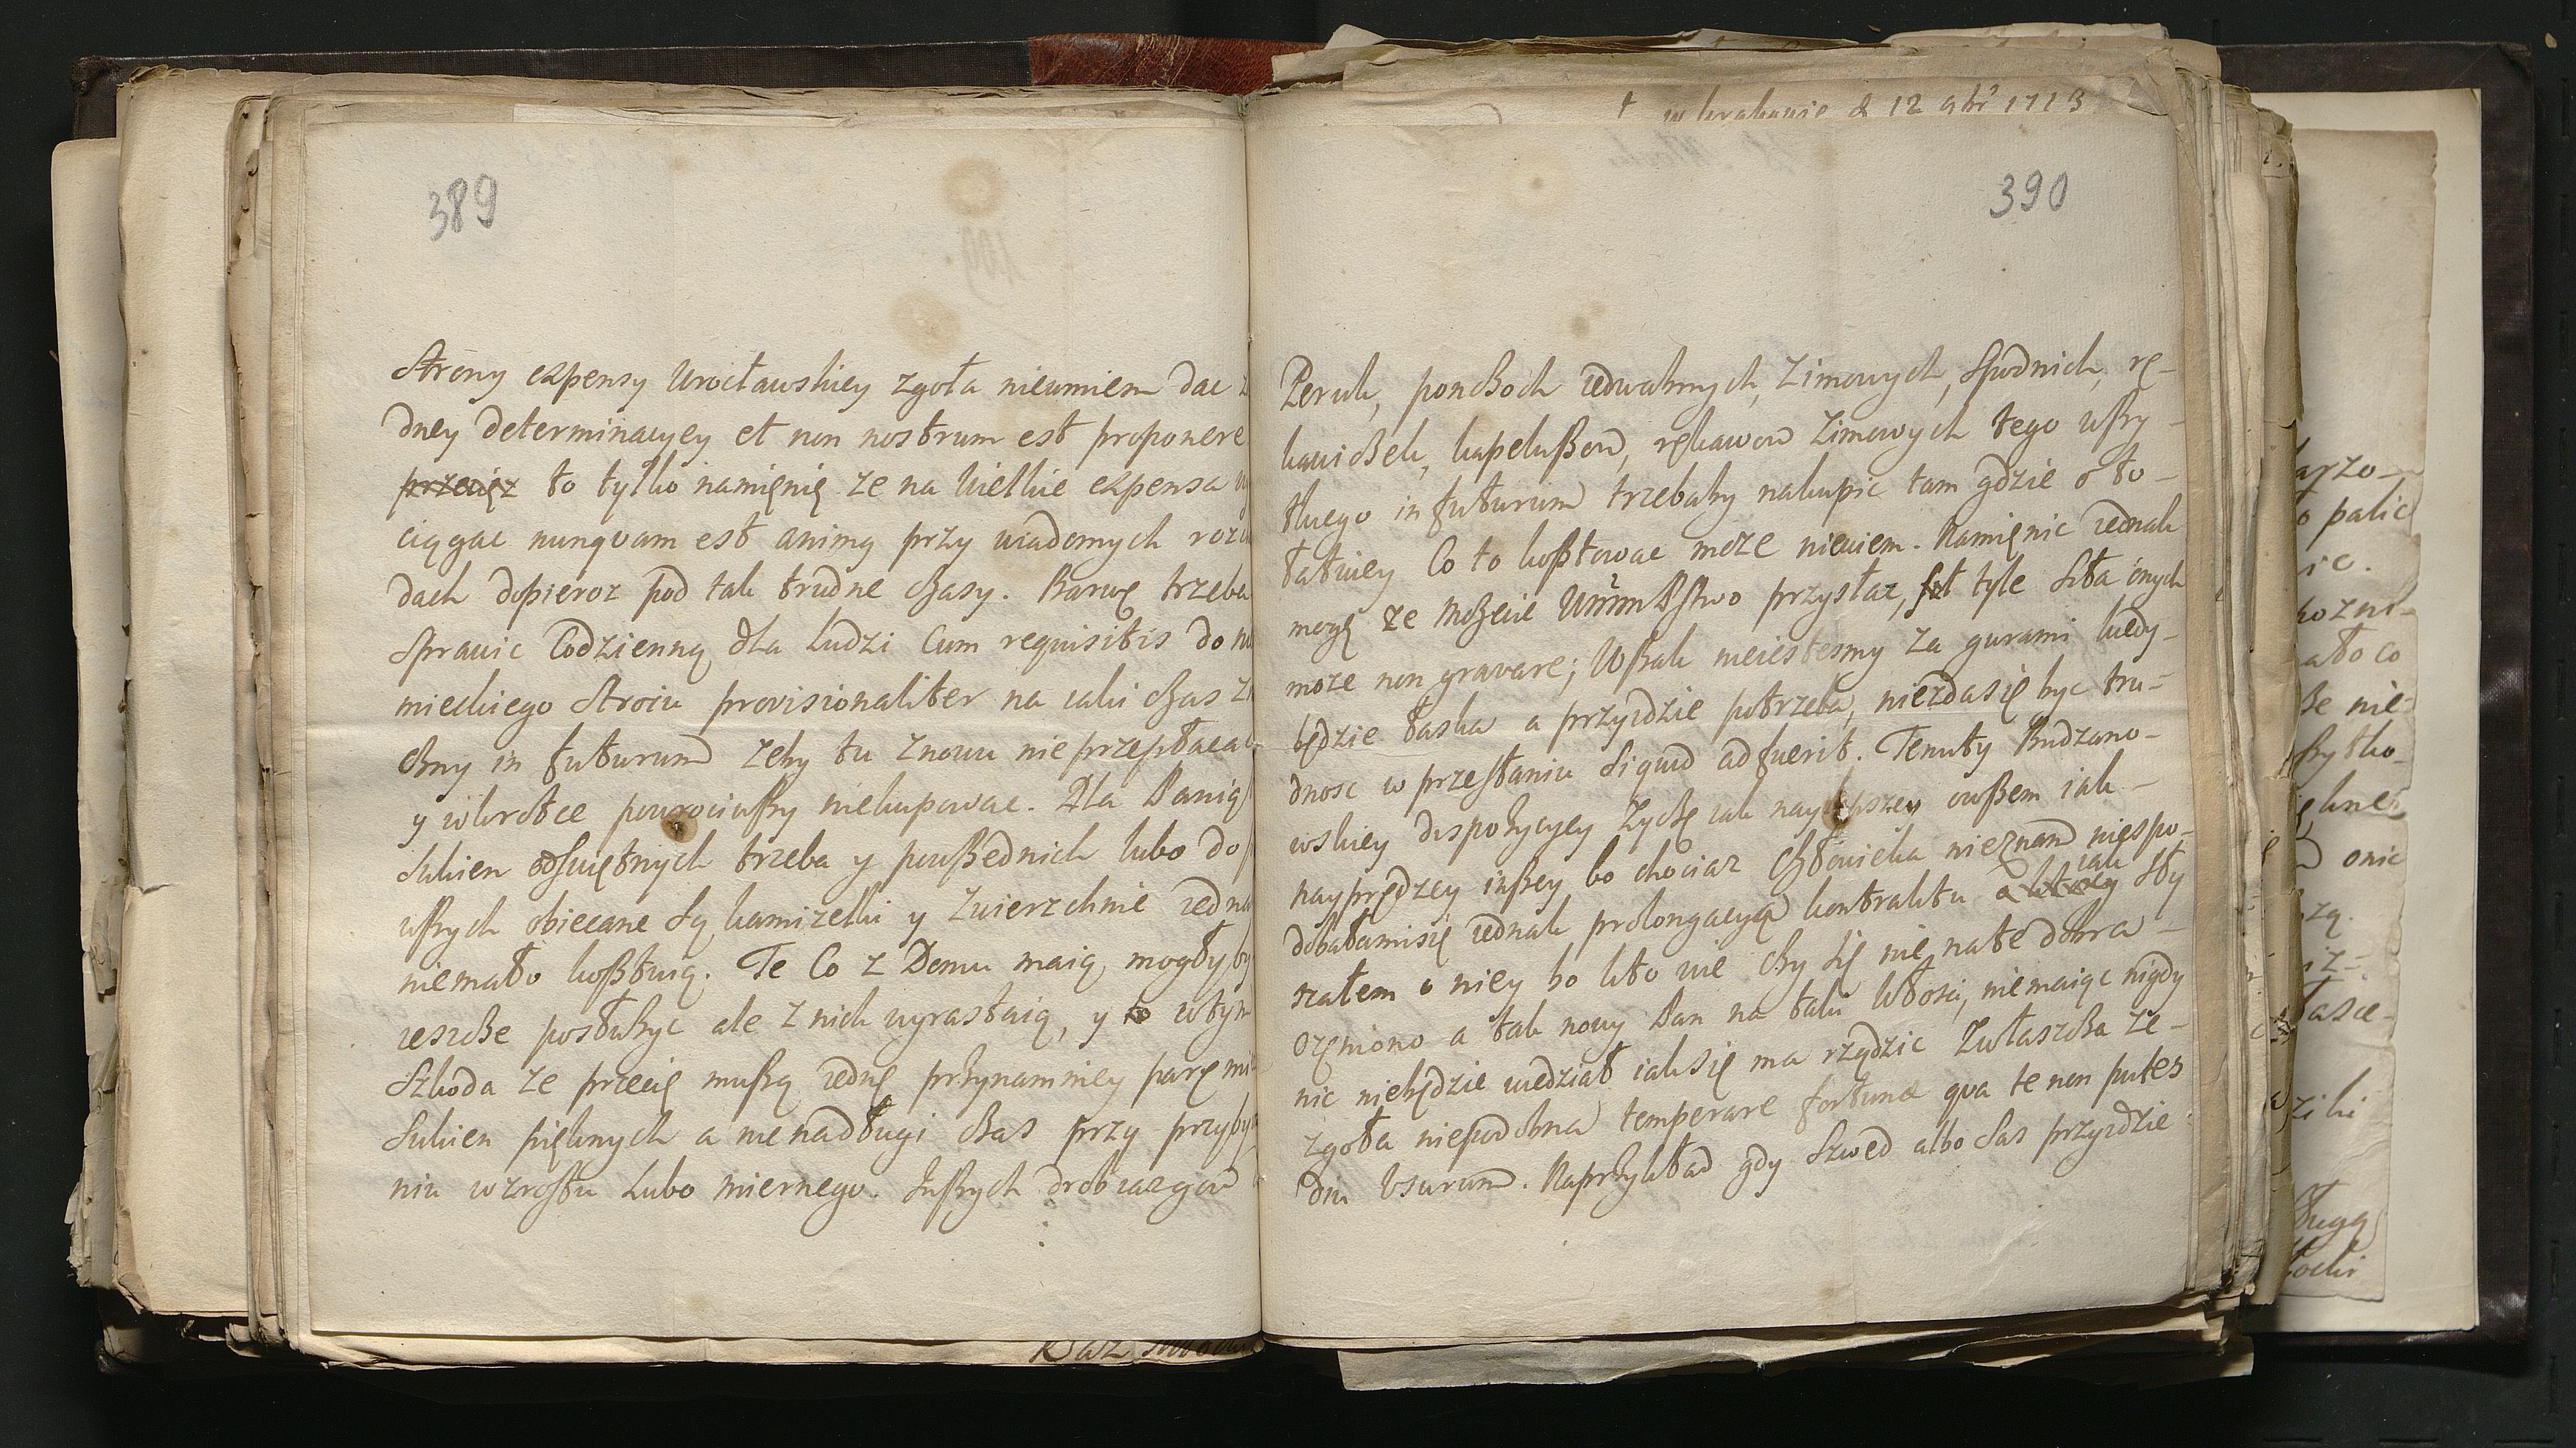 389
Strony expensy Wrocławskiey zgoła nieumiem dac
dney determinacyey et non nostrum est proponere
przecięz to tylko namięnię ze na wielkie expensa
ciągac nunqvam est animq przy wiadomych
dach dopieroz pod tak trudne czasy. Barwę trzeba
Sprawic Codzienną dla Ludzi Cum requisitis do
mieckiego Stroiu provisionaliter na iaki czas
czny in futurum zeby tu znowu nieprzepłacac
y wkrotce powrociwszy niekupowac. Dla
Sukien odswiętnych trzeba y powszednich lubo do
wszych obiecane są kamizelki y zwierzchnie
niemało kosztuią. Te Co z Domu maią, mogłyby
ieszcze posłużyc ale z nich wyrastaią, y to wtym
Szkoda ze przecię muszą iednę przynamniey parę
Sukien pięknych a nienadługi czas przy
niu wzrostu Lubo miernego. Inszych drobiazgow
w krakowie d 12 9br 1713
390
Peruk, ponczoch iedwabnych, Zimowych, Spodnich, rę-
kawiczek, kapeluszow, rękawow Zimowych tego wszy-
tkiego in futurum trzebaby nakupic tam gdzie o to-
łatwiey Co to kosztowac moze niewiem. Namięnic iednak
mogę ze mozecie przysłac, tyle Siła onych
moze non gravare; Wszak nieiestesmy za gurami kiedy-
będzie łaska a przyidzie potrzeba, niezdasię byc tru-
dnosc w przesłaniu Siquid adfuerit. Tenuty Budzano-
wskiey dispozycyey zyczę iak naylepszey owszem iak-
nayprędzey inszey bo chociaz Człowieka nieznam niespo-
dobałamisię iednak prolongacya kontraktu a ktorey iak sły
szałem o niey bo kto wie czy się nie na te dobra-
ozęniono a tak nowy Pan na taki włosci, niemaiąc nigdy
nic niebędzie wiedział iaksię ma rządzic zwłaszcza ze-
zgoła niepodobna temperare fortunæ qva te non putes
diu Usurum. Naprzykład gdy Szwed albo Sas przyidzie